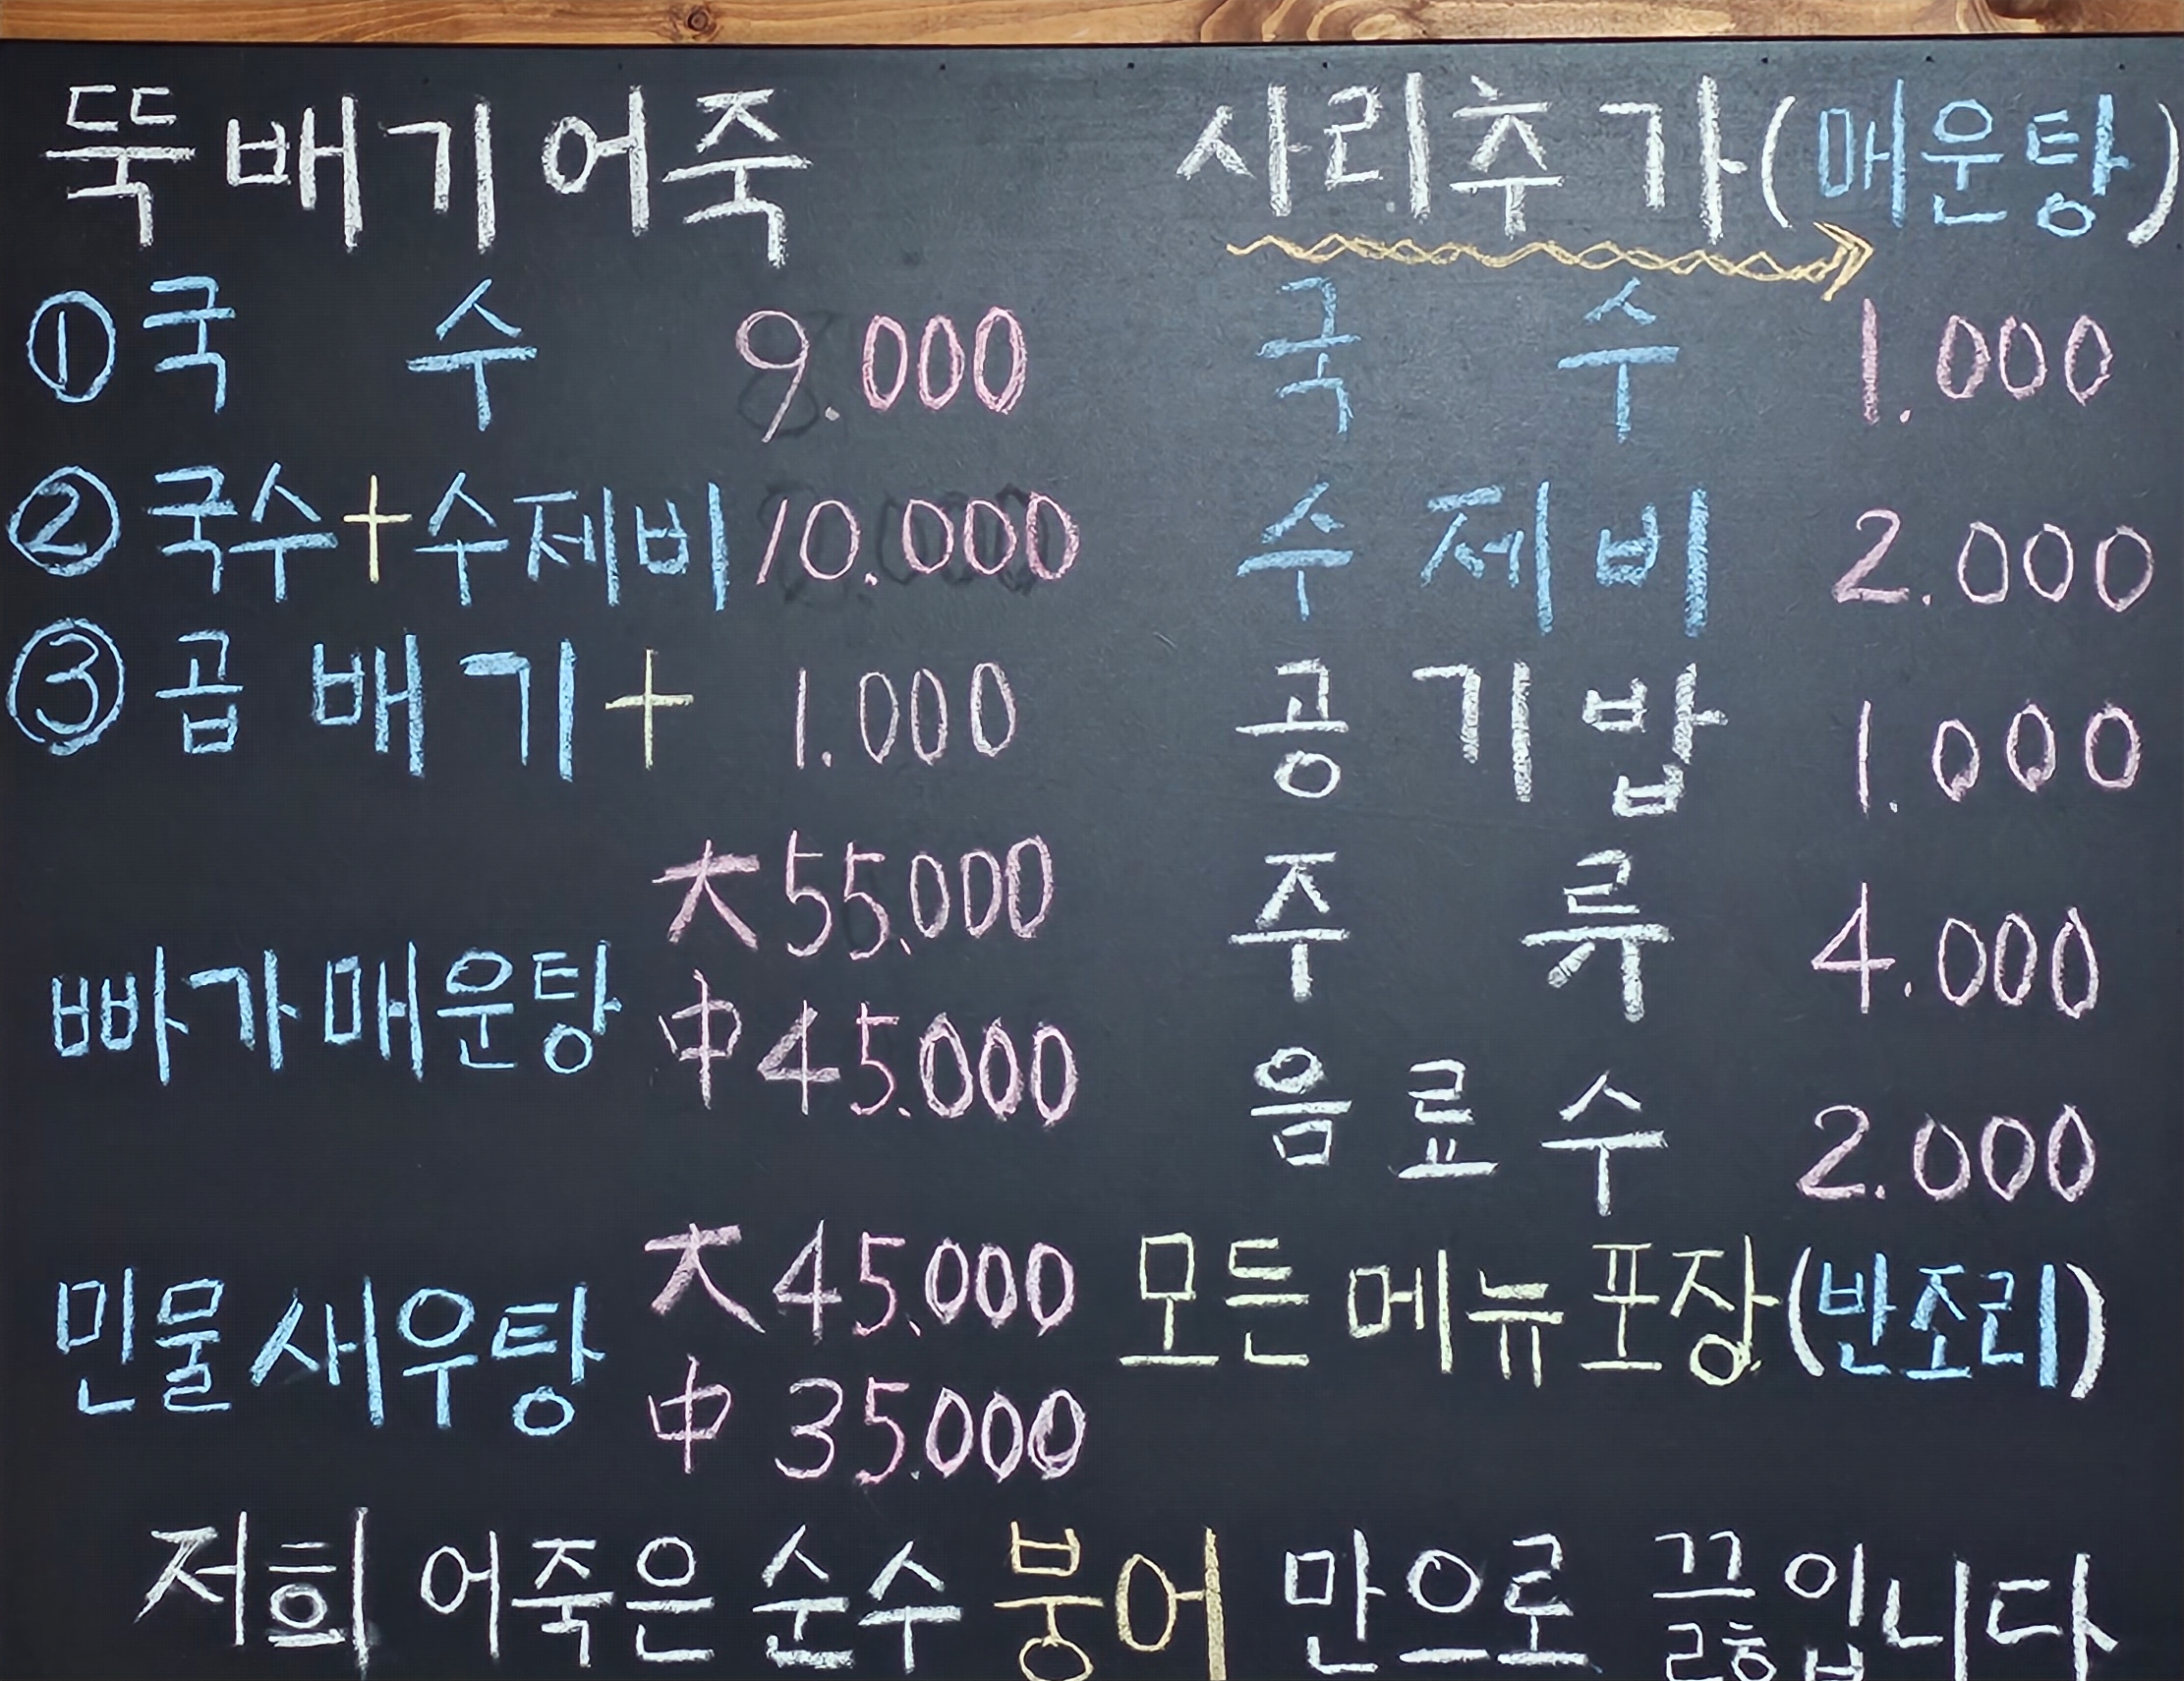 뚝배기어죽
① 국수 9.000
② 국수+수제비 10.000
③ 곱배기+ 1.000
빠가매운탕
大 55.000
中 45.000
민물새우탕
大 45.000
中 35.000
사리추가(매운탕)
국수 1.000
수제비 2.000
공기밥 1.000
주류 4.000
음료수 2.000
모든메뉴포장(반조리)
저희 어죽은 순수 붕어 만으로 끓입니다